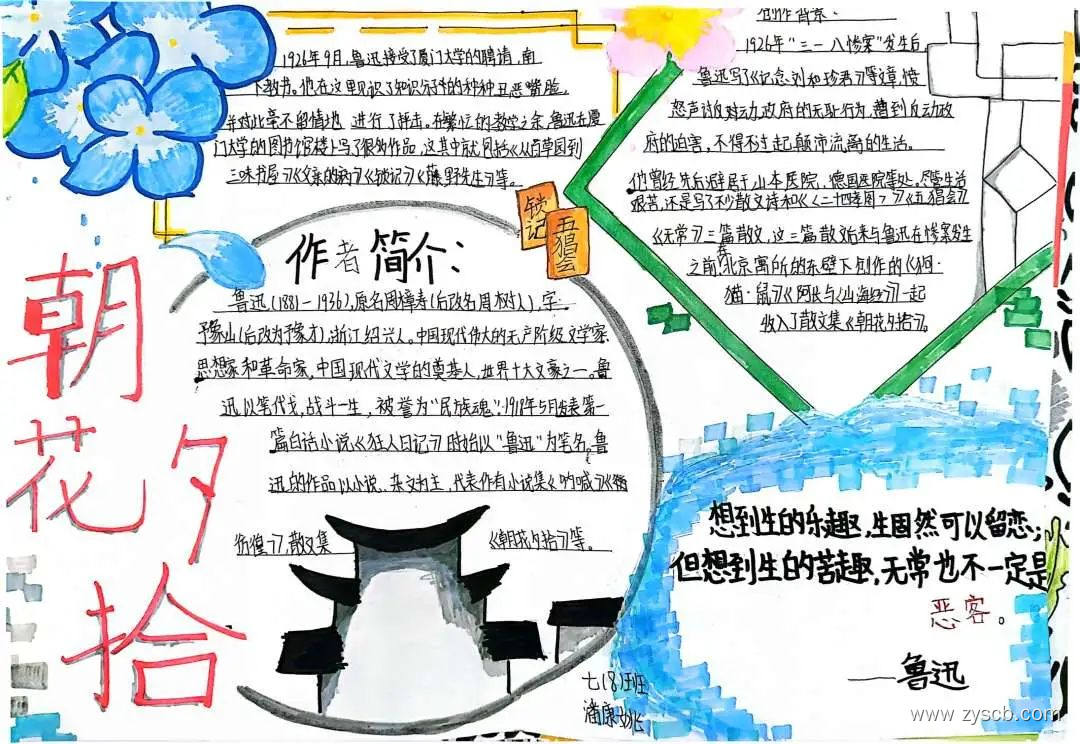 朝花夕拾
1926年9月,鲁迅接受了厦门大学的聘请,南
下教书。他在这里见识了知识分子的种种丑恶嘴脸,
并对此毫不留情地 进行了抨击。在繁忙的教学之余,鲁迅在厦
门大学的图书馆楼上写了很多作品,这其中就包括《从百草园到
三味书屋》《父亲的病》《锁记》《藤野先生》等。
锁记
五猖会
作者简介:
鲁迅(1881-1936),原名周樟寿(后改名周树人),字
豫山(后改为豫才),浙江绍兴人。中国现代伟大的无产阶级文学家
思想家和革命家,中国现代文学的奠基人,世界十大文豪之一。鲁
迅以笔代戈,战斗一生,被誉为“民族魂”.1918年5月发表第一
篇白话小说《狂人日记》时始以“鲁迅”为笔名。鲁
迅的作品以小说、杂文为主,代表作有小说集《呐喊》
彷徨》,散文集 《朝花夕拾》等。
七(8)班
潘康
创作背景:
1926年“三一八惨案”发生后
鲁迅写了《记念刘和珍君》等文章,愤
怒声讨反对动政府的无耻行为,遭到反动政
府的迫害,不得不过起颠沛流离的生活。
他曾经先后避居于山本医院、德国医院等处。尽管生活
艰苦,还是写了不少散文诗和《《二十四孝图》》《五猖会》
《无常》三篇散文,这三篇散文后来与鲁迅在惨案发生
之前在北京寓所的东壁下创作的《狗·
猫·鼠》《阿长与《山海经》》一起
收入了散文集《朝花夕拾》。
想到生的乐趣,生固然可以留恋;
但想到生的苦趣,无常也不一定是
恶客。
——鲁迅
www.zyscb.com